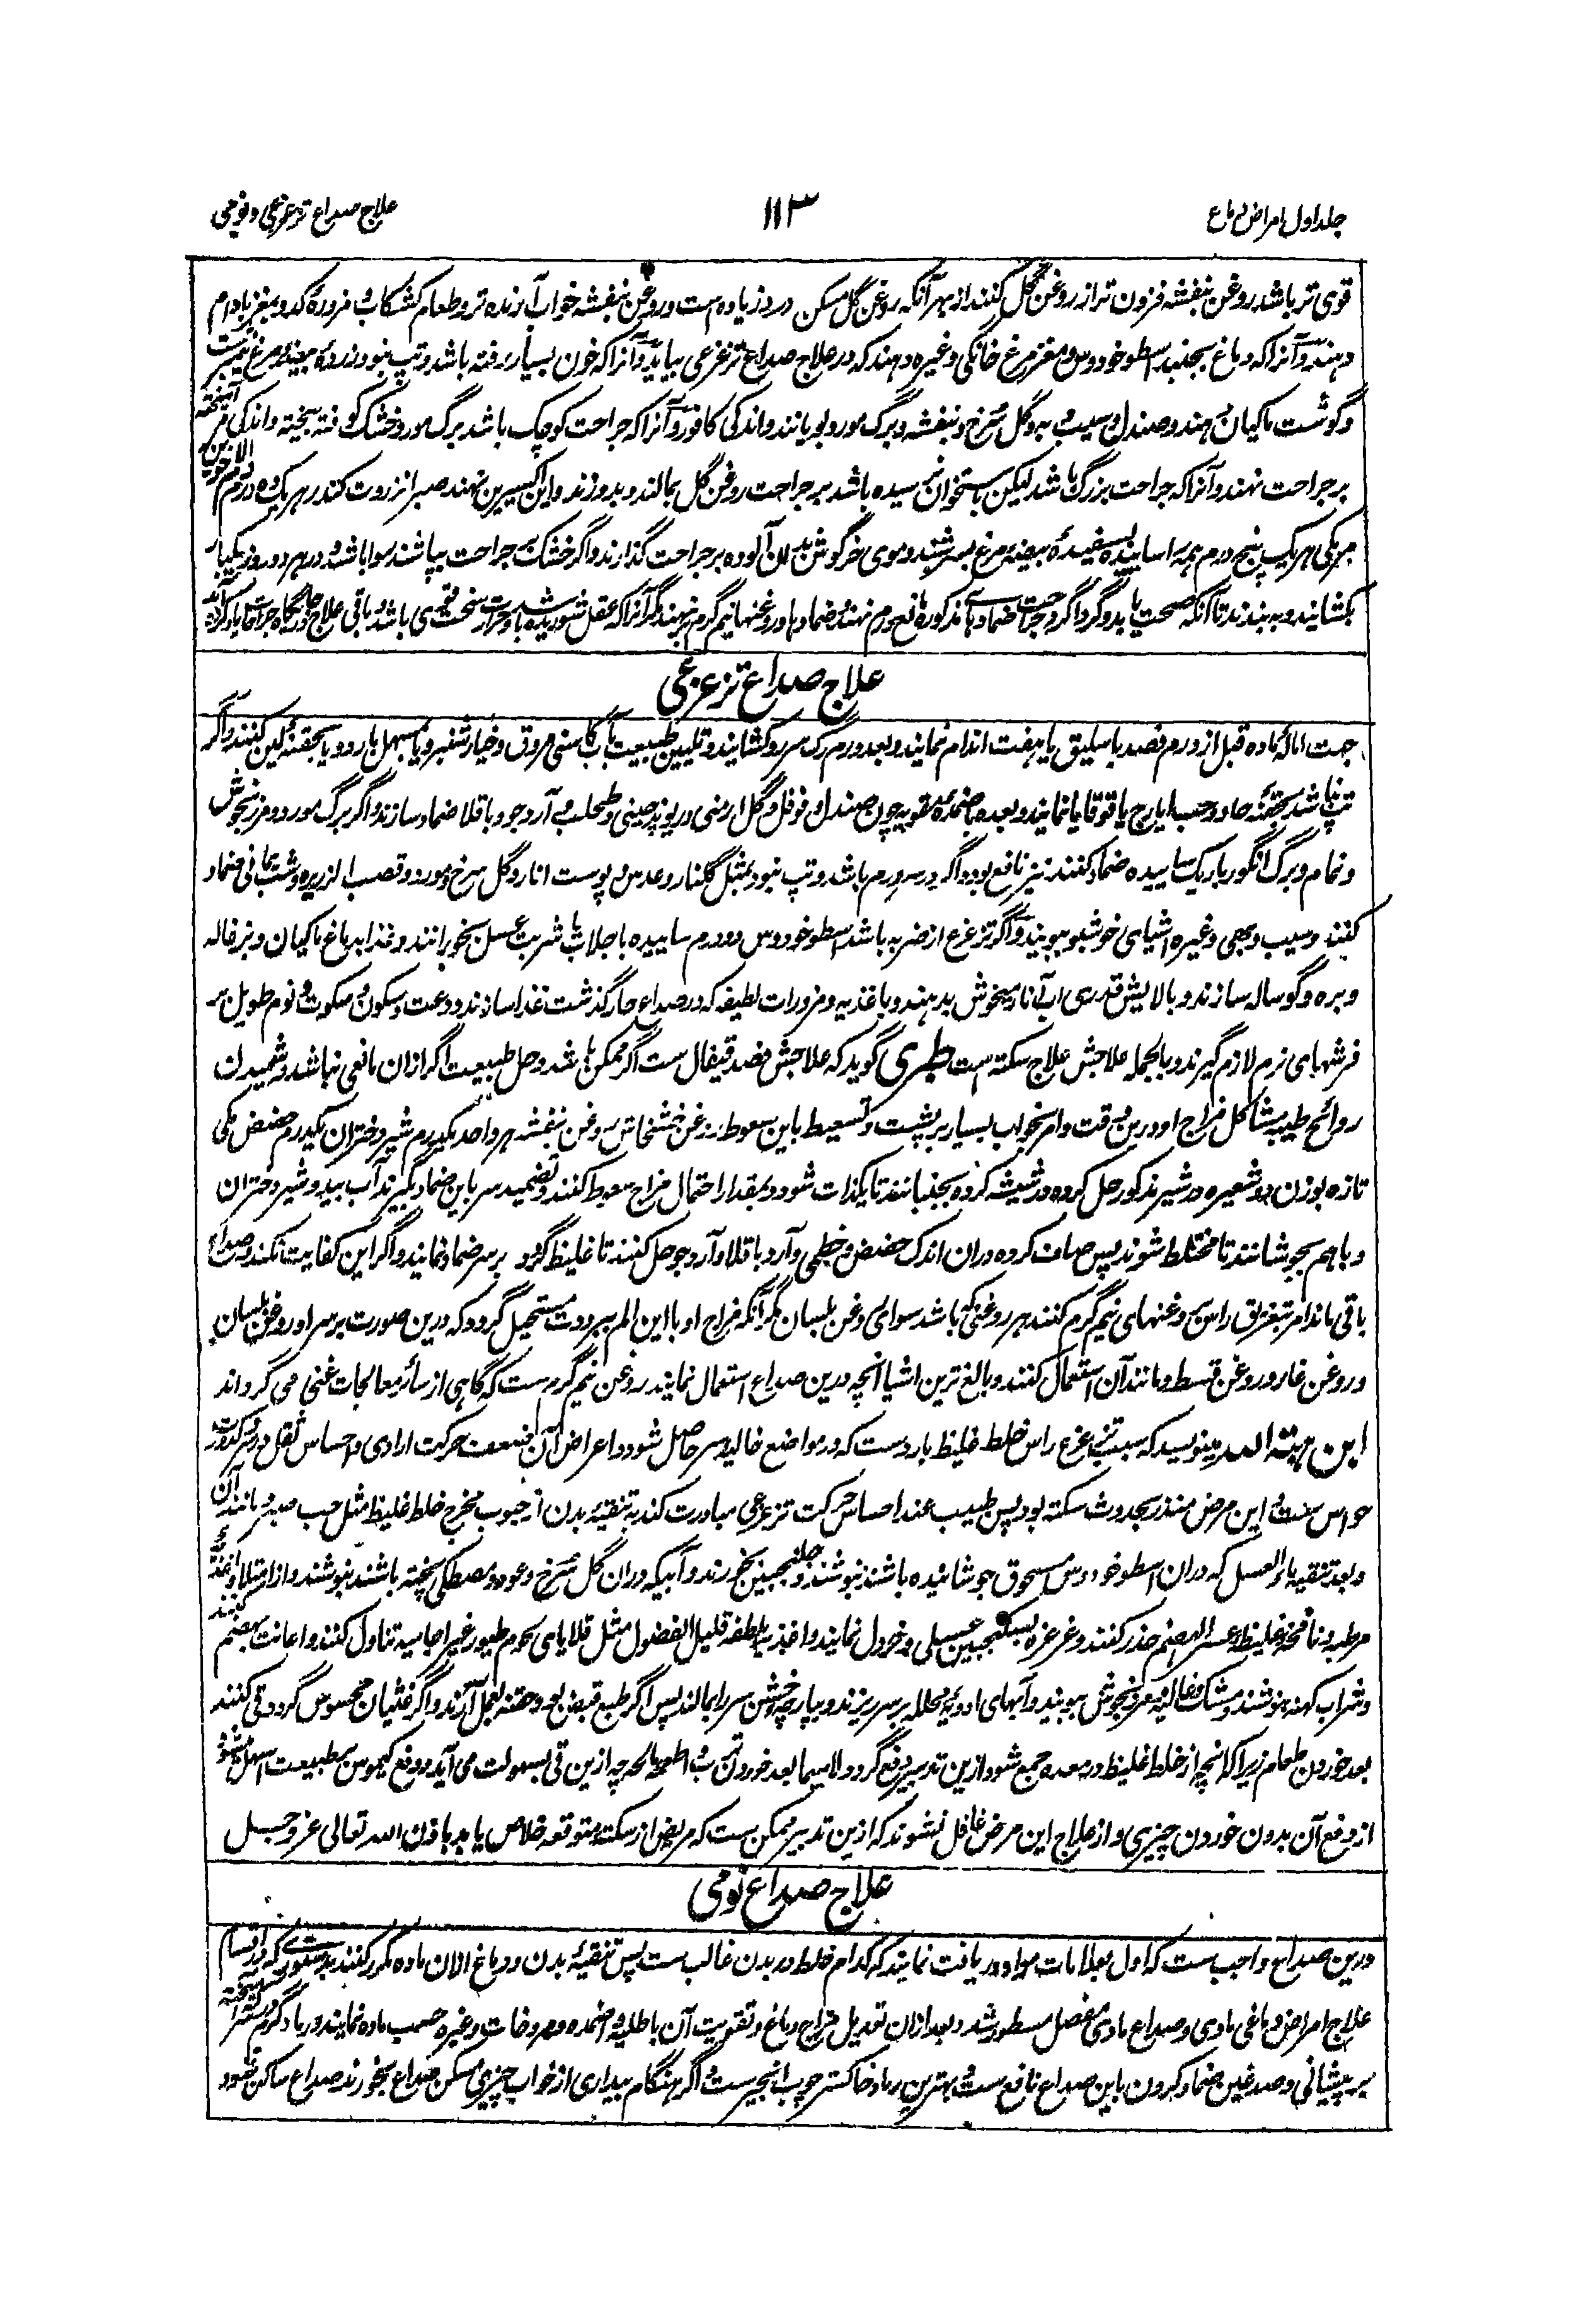 جلد اول امراض دماغ
۱۱۳
علاج صداع تزعزعی و نومی
قوی تر باشد روغن بنفشه فزون تر از روغن گل کنند از بهر آنکه روغن گل مسکن درد زیاده است و روغن بنفشه خواب آرنده تر و طعام کشکاب و مزوره کدو بمغز بادام
دهند و آنرا که دماغ بجنبد اسطوخودوس و مغز مرغ خانگی و غیره دهند که در علاج صداع تزعزعی بیاید و آنرا که خون بسیار رفته باشد و تپ نبود زرده بیضه مرغ نیمبرشت
و گوشت ماکیان دهند و صندل و سیب و به و گل سرخ و بنفشه و برگ مورد بویانند و اندکی کافور و آنرا که جراحت کوچک باشد برگ مورد خشک کوفته بیخته و اندکی مر آمیخته
بر جراحت نهند و آنرا که جراحت بزرگ باشد لیکن باستخوان نرسیده باشد بر جراحت روغن گل بمالند و بدوزند و این اکسیرین نهند صبر انزروت کندر هریک ده درم دم الاخوین
مرمکی هریک پنج درم همه را ساییده بسفیده بیضه مرغ بسرشند و موی خرگوش بدان آلوده بر جراحت گذارند و اگر خشک بر جراحت بپاشند روا باشد و در هر دو روز یکبار
بکشایند و ببندند تا آنکه صحت یابد و گرداگرد جراحت ضمادهای مذکوره مانع ورم نهند و ضمادها و روغنها نیم گرم نهند مگر آنرا که عقل شوریده باشد و حرارت سخت قوی باشد و باقی علاج در جایگاه جراحات یاد کرده آید
علاج صداع تزعزعی
جهت اماله ماده قبل از ورم فصد باسلیق یا هفت اندام نمایند و بعد ورم رگ سرو کشایند و تلیین طبیعت بآب کاسنی مروق و خیار شنبر و یا مسهل بارد و یا بحقنه لین کنند و اگر
تپ نباشد بحقنه حاد و حب ایارج یا قوقایا نمایند و بعده باضمده مقویه چون صندل و فوفل و گل ارمنی و ریوند چینی و طحلب و آرد جو و باقلا ضماد سازند و اگر برگ مورد و مرزنجوش
و نمام و برگ انگور باریک ساییده ضماد کنند نیز نافع بود و اگر در سر ورم باشد و تپ نبود بمثل گلنار و عدس و پوست انار و گل سرخ و مورد و قصب الذریره و شب یمانی ضماد
کنند و سیب و بهی و غیره اشیای خوشبو ببویند و اگر تزعزع از ضربه باشد اسطوخودوس دو درم ساییده با جلاب یا شربت عسل بخورانند و غذا بدماغ ماکیان و بزغاله
و بره و گوساله سازند و بالایش قدری آب انار میخوش بدهند و باغذیه و مزورات لطیفه که در صداع حار گذشت غذا سازند و دعت و سکون و سکوت و نوم طویل بر
فرشهای نرم لازم گیرند و بالجمله علاجش علاج سکته است طبری گوید که علاجش فصد قیفال ست اگر ممکن باشد و حل طبیعت اگر ازان مانعی نباشد و شمیدن
روائح طیبه مشاکل مزاج او درین وقت و امر بخواب بسیار بر پشت و تسعیط باین سعوط روغن خشخاش روغن بنفشه هر واحد یکدرم شیر دختران یکدرم حضض مکی
تازه بوزن دو شعیره در شیر مذکور حل کرده در شیشه کرده بجنبانند تا یکذات شود و بمقدار احتمال مزاج سعوط کنند و تضمید سر باین ضماد بگیرند آب بید و شیر دختران
و باهم بجوشانند تا مختلط شوند پس صاف کرده دران اندک حضض و خطمی و آرد باقلا و آرد جو حل کنند تا غلیظ گردد بر سر ضماد نمایند و اگر این کفایت نکند و صداع
باقی ماند امر بتغریق راس بروغنهای نیم گرم کنند هر روغنی که باشد سوای روغن بلسان مگر آنکه مزاج او با این الم ببرودت مستحیل گردد که درین صورت بر سر او روغن بلسان
و روغن غار و روغن قسط و مانند آن استعمال کنند و بالغ ترین اشیا انچه درین صداع استعمال نمایند روغن نیم گرم ست که گاهی از سائر معالجات غنی می گرداند
ابن هبة الله مینویسد که سبب تزعزع راس خلط غلیظ بارد ست که در مواضع خالیه سر حاصل شود و اعراض آن ضعف حرکت ارادی و احساس ثقل در سر و کدورت
حواس ست و این مرض منذر بحدوث سکته بود پس طبیب عند احساس حرکت تزعزعی مبادرت کند به تنقیه بدن از حبوب مخرج خلط غلیظ مثل حب صبر و مانند آن
و بعد تنقیه ماء العسل که دران اسطوخودوس مسحوق جوشانیده باشند بنوشند و جلنجبین بخورند و آبیکه دران گل سرخ و عود و مصطکی پخته باشند بنوشند و از امتلا و اغذیه
مرطبه و نافخه و غلیظه و عسر الهضم حذر کنند و غرغره بسکنجبین عسلی و خردل نمایند و اغذیه لطیفه قلیل الفضول مثل قلایای لحوم طیور غیر آجامیه تناول کنند و اعانت بهضم کنند
و شراب کهنه بنوشند و مشک و غالیه و مرزنجوش ببویند و آبهای ادویه محلله بر سر ریزند و بپارچه خشن سر را بمالند پس اگر طبع قبض بود حقنه بعمل آرند و اگر غثیان محسوس گردد قی کنند
بعد خوردن طعام زیرا که انچه از خلط غلیظ در معده جمع شود ازین تدبیر مندفع گردد لاسیما بعد خوردن ترب و اطعمه مالحه چه ازین قی بسهولت می آید و دفع کیموس بر طبیعت اسهل میشود
از دفع آن بدون خوردن چیزی و از علاج این مرض غافل نشوند که ازین تدبیر ممکن ست که مریض از سکته متوقعه خلاص یابد باذن الله تعالی عز و جل
علاج صداع نومی
درین صداع واجب ست که اول بعلامات مواد دریافت نمایند که کدام خلط در بدن غالب ست پس تنقیه بدن و دماغ ازان ماده مکرر کنند بدستوریکه در اقسام
علاج امراض دماغی مادی و صداع مادی مفصل مسطور شد و بعد ازان تعدیل مزاج دماغ و تقویت آن باطلیه و اضمده و مروخات و غیره حسب ماده نمایند و رماد گرم در سرکه آمیخته
بر پیشانی و صدغین ضماد کردن باین صداع نافع ست و بهترین رماد خاکستر چوب انجیر ست و اگر هنگام بیداری از خواب چیزی مسکن صداع بخورند صداع ساکن شود